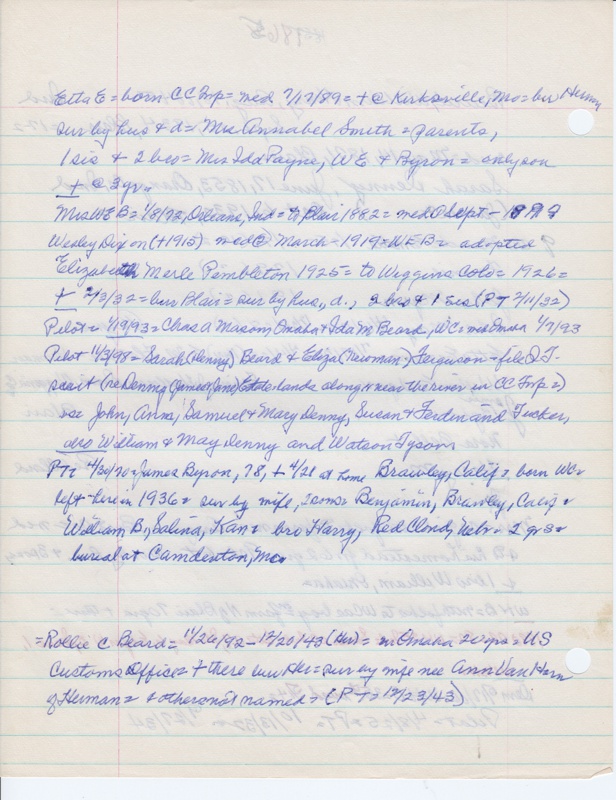 Etta E = born CC Twp = med 7/17/89 = + @ Kirksville, Mo = bur Herman
sur by hus & d = Mrs Annabel Smith = parents,
1 sis & 2 bro = Mrs Ida Payne, W E & Byron = only son
+ @ 3 yr.
Mrs W E B = 1/8/72, Orleans, Ind = to Blair 1882 = med Sept -
Wesley Dixon (+1915) med @ March - 1919 = WEB = adopted
Elizabeth Merle Pembleton 1925 = to Wiggins Colo = 1926 =
+ 2/3/32 = bur Blair = sur by hus, d., 2 bro & 1 sis (PT 2/11/32)
Pilot = 1/19/93 = Chas A Mason, Omaha & Ida M Beard, WC = med Omaha 1/7/93
Pilot 11/3/98 = Sarah (Denny) Beard & Eliza (Newman) Ferguson = file
suit (re Denny (James & Jane) Estate lands along & near the river in CC Twp =)
vs = John, Anna, Samuel & Mary Denny, Susan & Ferdinand Tucker,
also William & May Denny and Watson Tyson
PT = 4/30/70 = James Byron, 78, + 4/21 at home Brawley, Calif = born WC =
left here in 1936 = sur by wife, 2 sons = Benjamin, Brawley, Calif &
William B, Salina, Kan = bro Harry, Red Cloud, Nebr = 2 gr s =
burial at Camdenton, Mo
= Rollie C Beard = 11/26/92 - 12/20/43 (Her) = in Omaha 20 yrs = US
Customs Office = + there bur Her = sur by wife nee Ann Van Horn
of Herman = & others not named = (PT = 12/23/43)